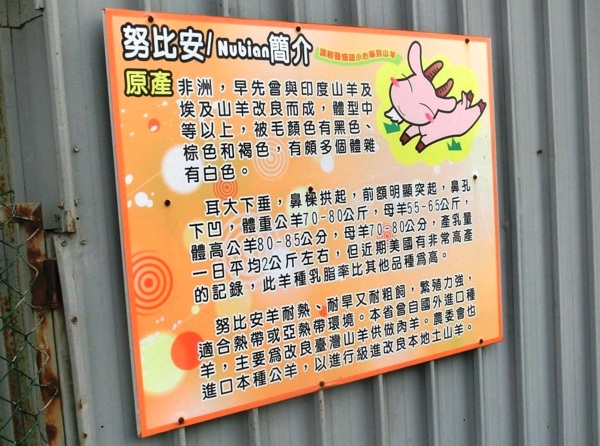 努比安/Nubian簡介
請輕聲細語小心嚇到山羊
原產 非洲，早先曾與印度山羊及
埃及山羊改良而成，體型中
等以上，被毛顏色有黑色、
棕色和褐色，有頗多個體雜
有白色。
耳大下垂，鼻樑拱起，前額明顯突起，鼻孔
下凹，體重公羊70-80公斤，母羊55-65公斤，
體高公羊80-85公分，母羊70-80公分，產乳量
一日平均2公斤左右，但近期美國有非常高產
的記錄，此羊種乳脂率比其他品種為高。
努比安羊耐熱、耐旱又耐粗飼，繁殖力強，
適合熱帶或亞熱帶環境。本省曾自國外進口種
羊，主要為改良臺灣山羊供做肉羊。農委會也
進口本種公羊，以進行級進改良本地土山羊。